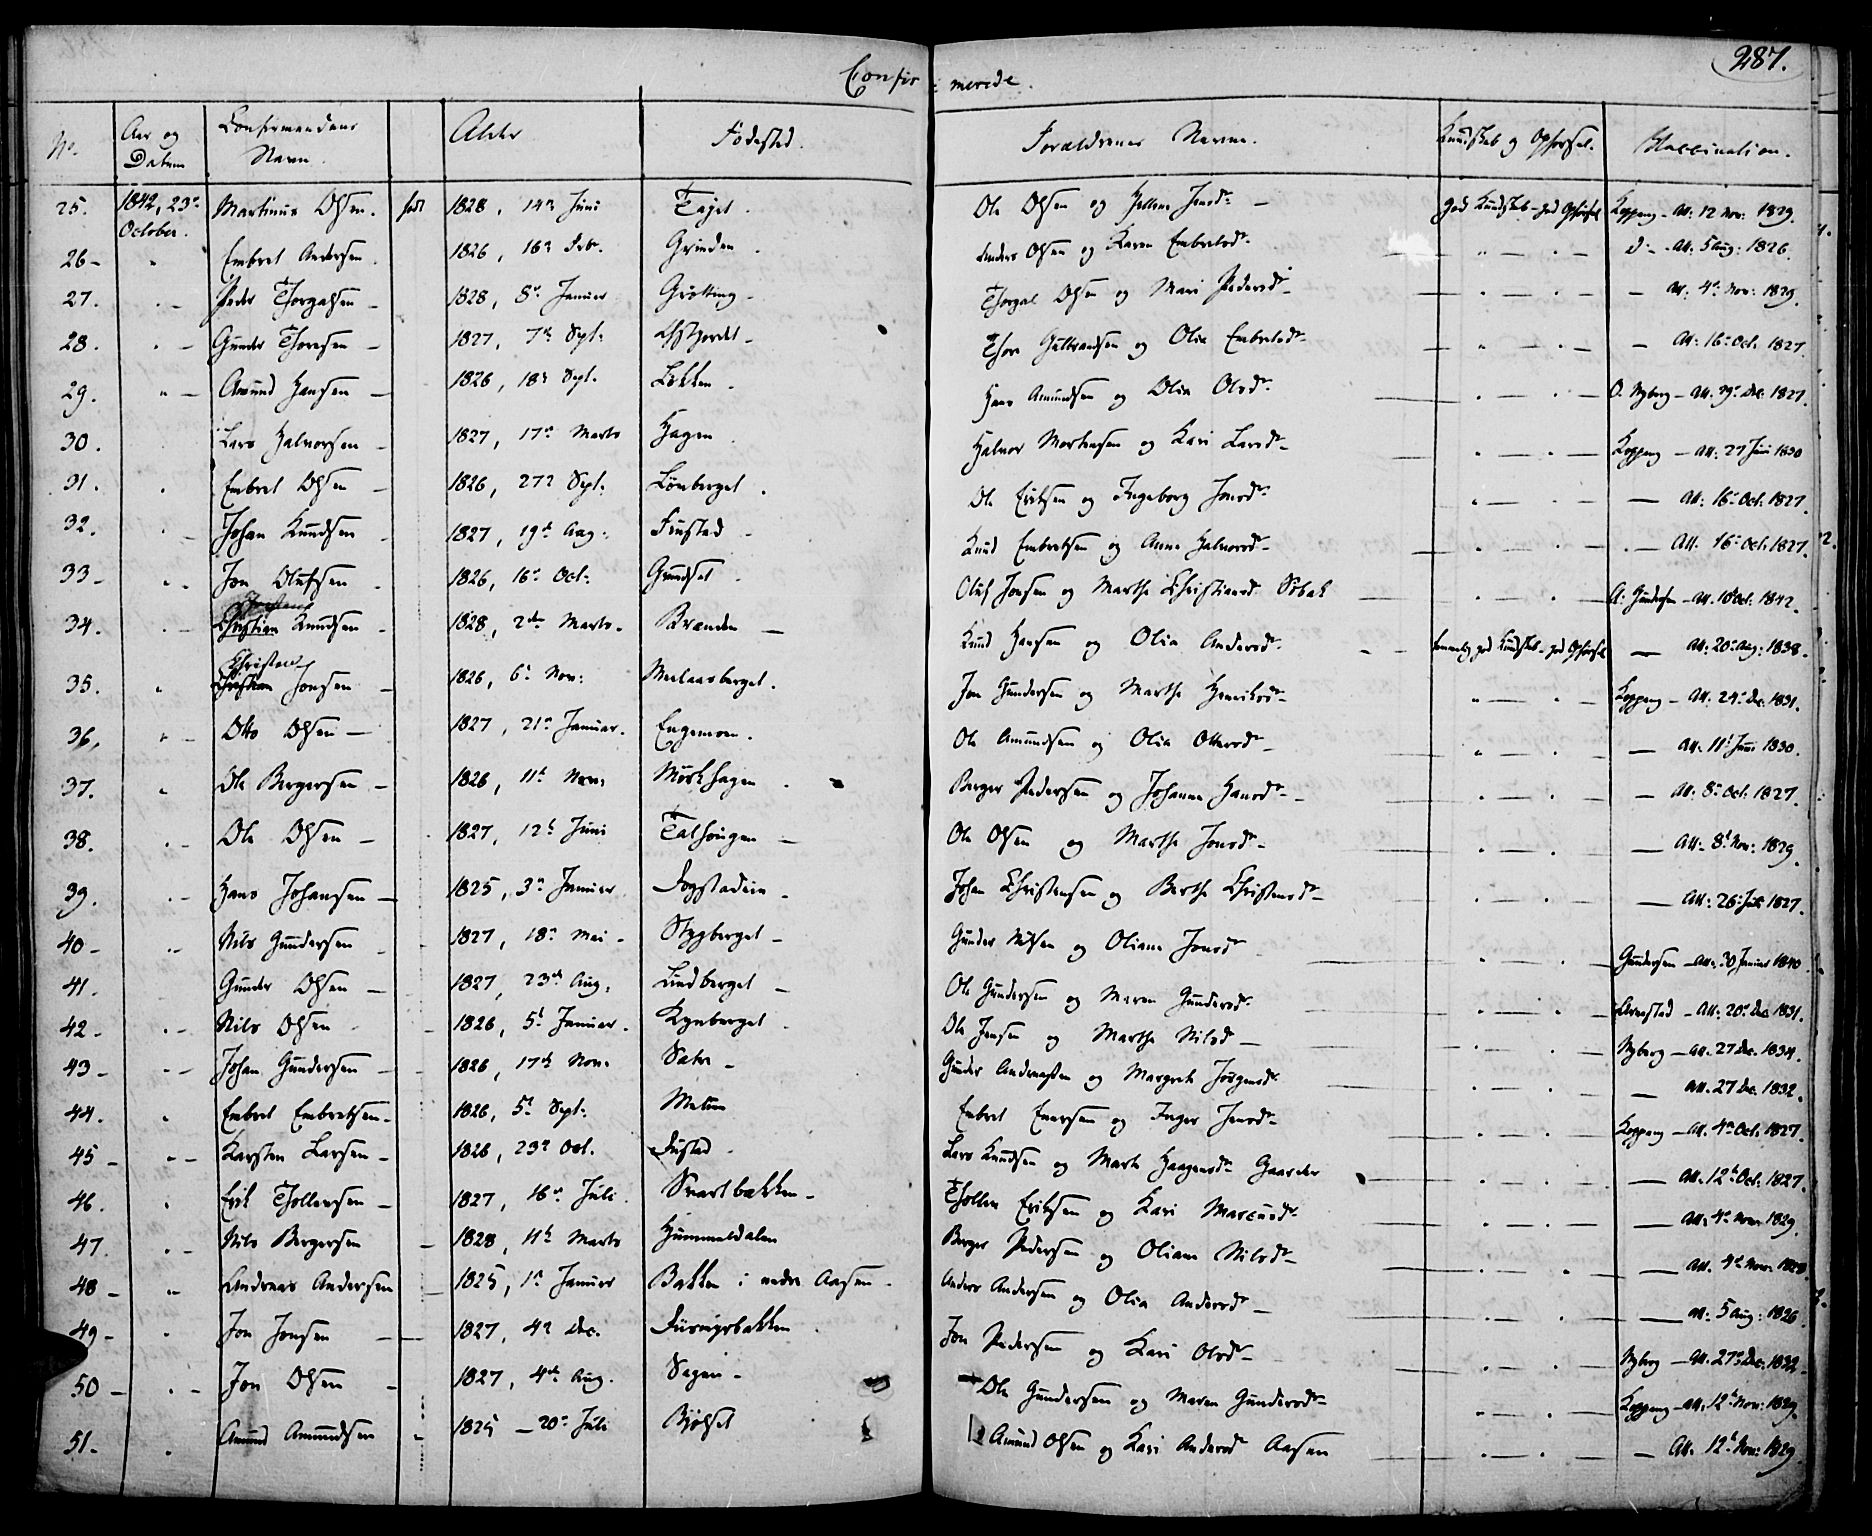 Confir merede.
287.
No. Aar og Datum Confirmandens Navn. Alder Födested. Forældrenes Navne. Kundskab og Opförsel. Vaccination.
25. 1842, 23de October. Martinus Olsen. född 1828, 14de Juni Ole Olsen og god Kundskab - god Opförsel Koppang - Att: 12 Nov: 1829.
26 - " Embret Andersen. 1826, 16de Febr. Grinden Anders Olsen og Karen Embretsdr. " - D. - Att: 5 Aug: 1826.
27. " - Peder Thorgalsen - 1828, 8de Januar Grötting - Thorgal Olsen og Mari Pedersdr - - Att: 4de Nov: 1829.
28. " - Gunder Thoresen - 1827, 7de Sept: Thore Gulbrandsen og Olia Embretsdr - - Att: 16de Oct: 1827.
29. " - Amund Hansen - 1826, 18de Sept. Løkken. Hans Amundsen og Olia Olsdr. O. Nyberg - Att. 29de Dec: 1827.
30. Lars Halvorsen - 1827, 17de Marts Hagen. Halvor Mortensen og Kari Larsdr - Koppang - Att: 27 Juni 1830
31. " Embret Olsen - 1826, 27de Sept. Lönberget. Ole Eriksen og Ingeborg Jonsdr - - Att: 16de Oct: 1827.
32. " Johan Knudsen - 1827, 19de Aug: Knud Embretsen og Anne Halvorsdr - - Att: 16de Oct: 1827.
33 - " Jon Olufsen - 1826, 16de Oct: Grundset. Oluf Jonsen og Marthe Christiansdr Söbak A: Gundersen - Att. 10de Oct: 1842.
34. " - Christian Knudsen - 1828, 2den Marts. Brænden - Knud Hansen og Olia Andersdr. temmelig god Kundskab - god Opförsel - Att: 20de Aug: 1838.
35. " Christen Jonsen - 1826, 6te Nov: Melaasberget. Jon Gundersen og Marthe Henriksdr - Koppang - Att: 24de Dec. 1831.
36. " - Otto Olsen - 1827, 21de Januar. Engemoen. Ole Amundsen og Olia Ottersdr - - Att: 11te Juni 1830.
37. " Ole Bergersen - 1826, 11te Nov: Mörkhagen. Berger Pedersen og Johanne Hansdr - - Att: 8de Oct: 1827.
38. " - Ole Olsen - 1827, 12te Juni Ole Olsen og Marthe Jonsdr - - Att: 8de Nov: 1829.
39. " - Hans Johansen - 1825, 3de Januar Johan Christensen og Berthe Christensdr - - Att: 26de Juli 1827.
40 - " Nils Gundersen 1827, 18de Mai - Stygberget - Gunder Nilsen og Oliane Jonsdr Gundersen - Att: 30 Januar 1840
41. " Gunder Olsen - 1827, 23de Aug. Lindberget - Ole Gundersen og Maren Gundersdr - Arnestad - Att: 20de Dec 1831.
42 - " - Nils Olsen - 1826, 5te Januar. Kynberget. Ole Jensen og Marthe Nilsdr - Nyberg - Att: 27 Dec. 1834.
43 - " - Johan Gundersen - 1826, 17de Nov: Sætre - Gunder Andreassen og Margrete Jörgensdr - - Att. 27 Dec. 1832.
44. " Embret Embretsen - 1826, 5te Sept: Embret Enersen og Inger Jensdr - Koppang - Att. 4de Oct. 1827.
45 - " - Karsten Larsen - 1826, 23de Oct. Lars Knudsen og Marte Haagensdr Gaarder - Att. 12te Oct. 1827.
46. " Erik Thollersen - 1827, 16de Juli. Svartbækken - Tholler Eriksen og Kari Marcusdr - - Att: 4de Nov 1829.
47. " - Nils Bergersen - 1828, 11te Marts Hummeldalen Berger Pedersen og Oliane Nilsdr - - Att. 4de Nov: 1828.
48 - " Andreas Andersen 1825, 1ste Januar Bakken i nedre Aasen. Anders Andersen og Olia Andersdr - - Att: 5 Aug: 1826
49 - " Jon Jonsen - 1827, 4de Dec. Jon Pedersen og Kari Olsdr - Nyberg - Att. 27de Dec. 1832
50 - " - Jon Olsen - 1827, 4de Aug. Sagen - Ole Gundersen og Maren Gundersdr - Koppang - Att. 12te Nov: 1829.
51. " Amund Amundsen 1825 - 20de Juli Björset Amund Olsen og Kari Andersdr Aasen - Att. 12te Nov: 1829.